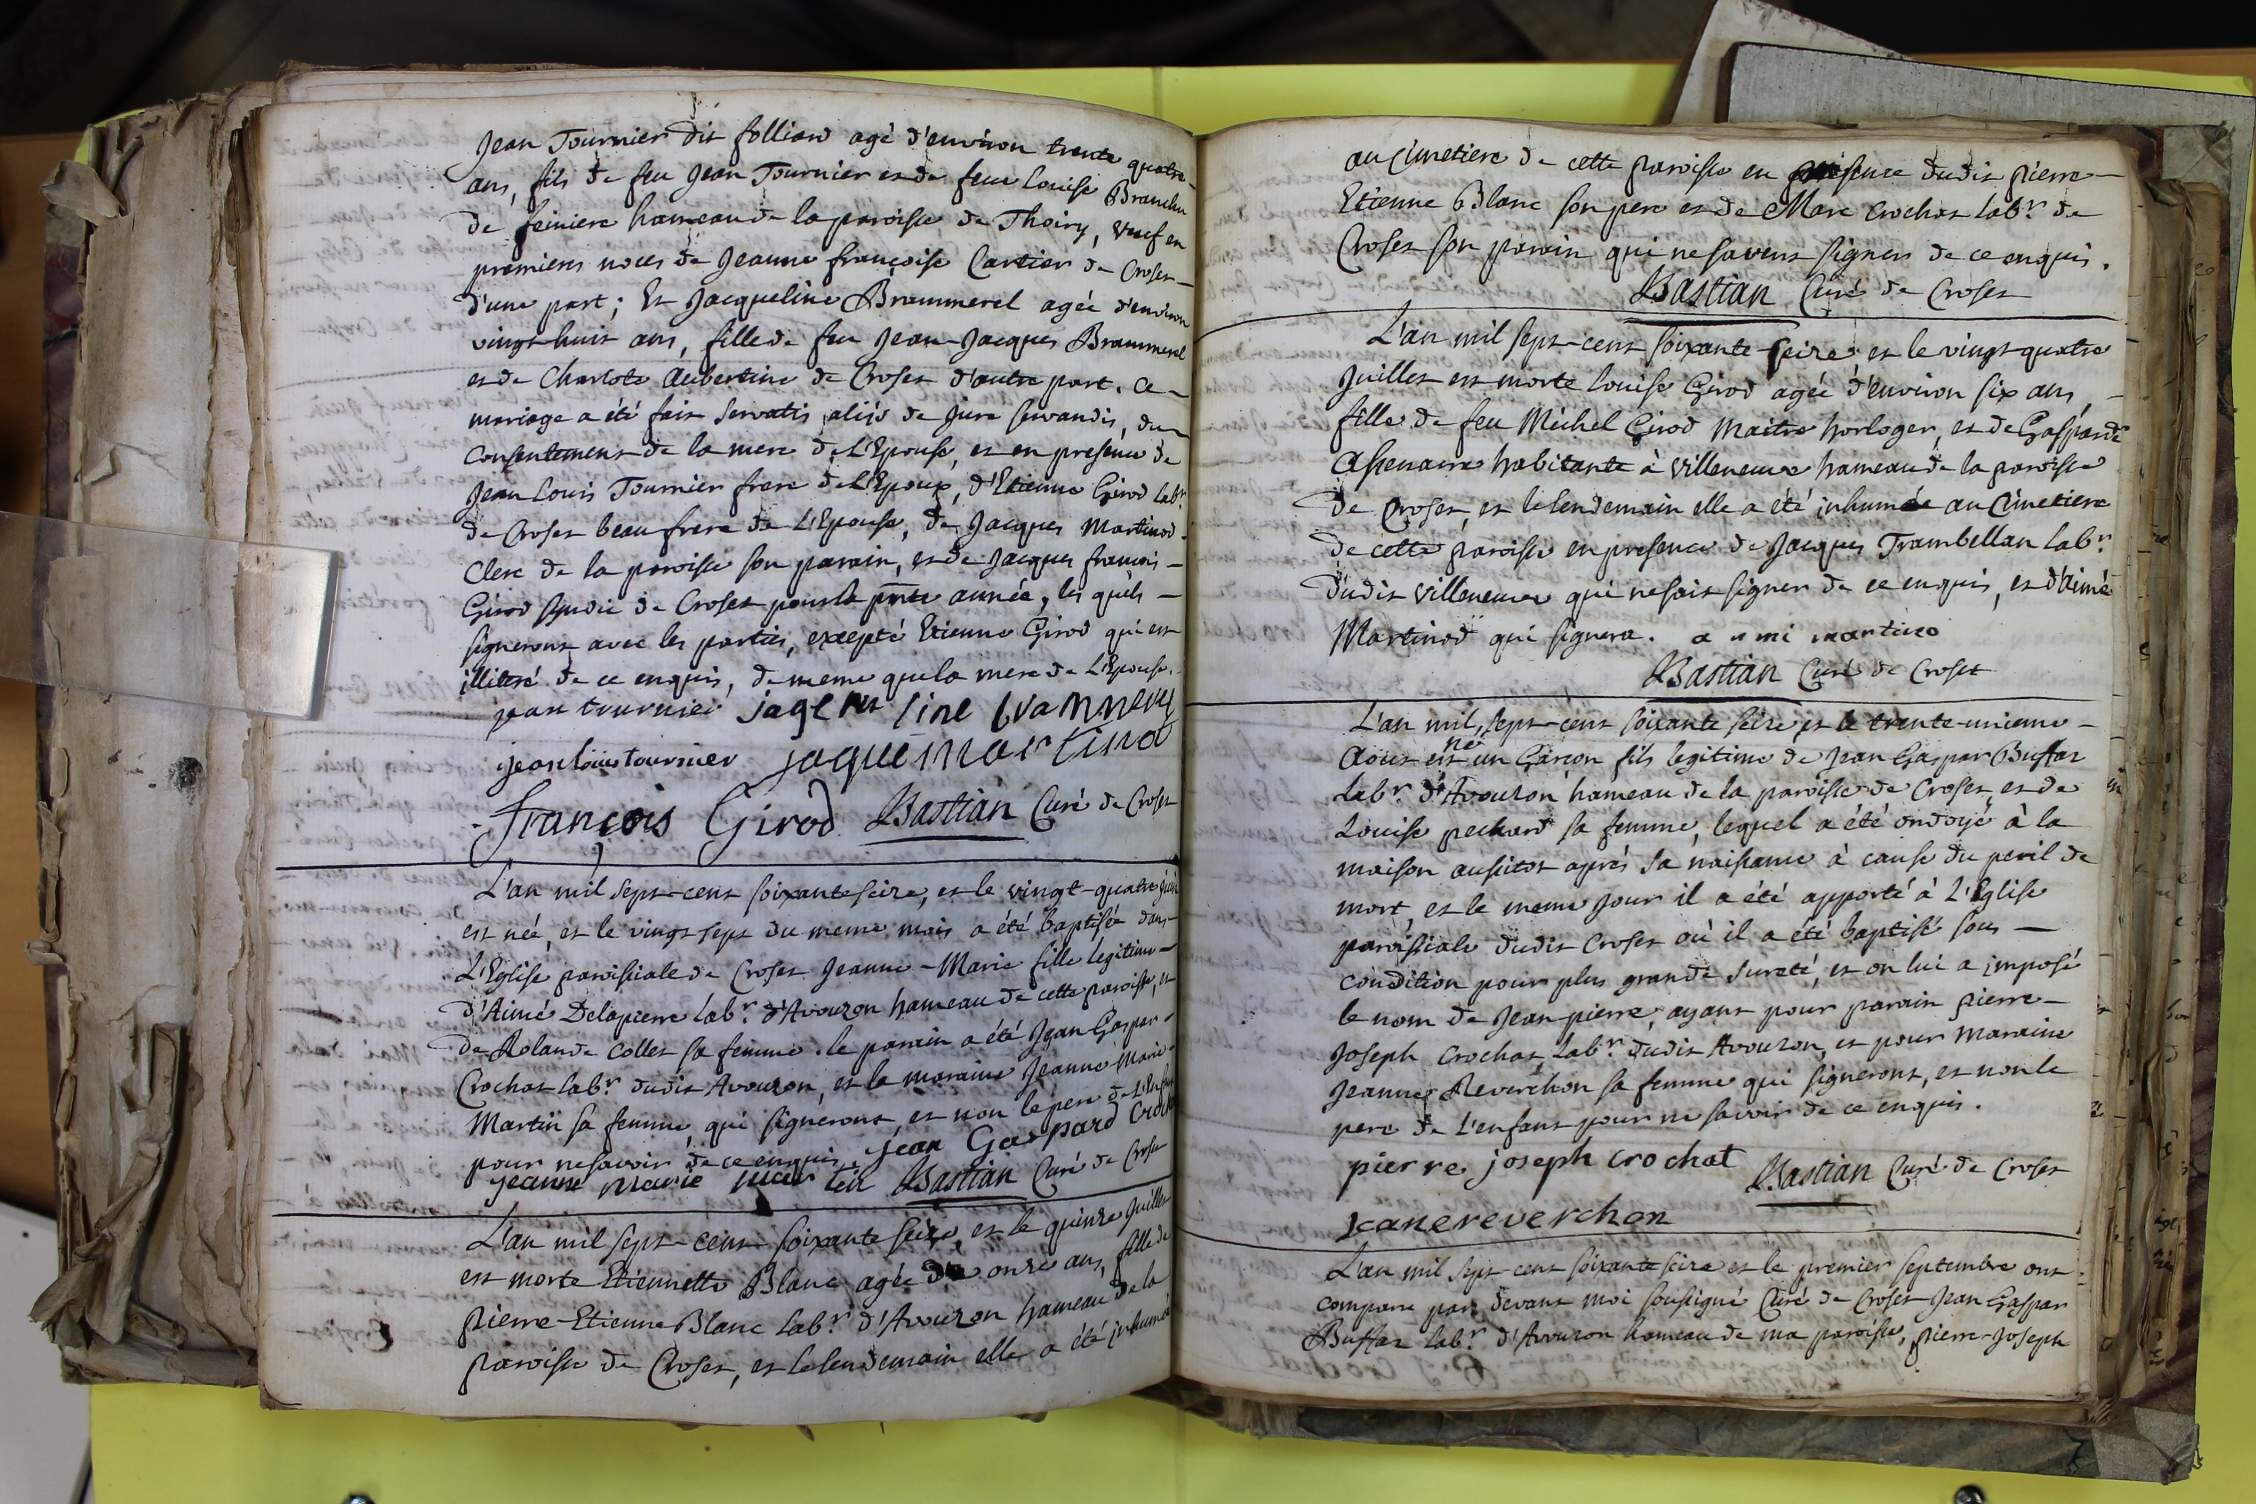 Jean Tournier dit folliard agé d'environ trente quatre
ans, fils de feu Jean Tournier et de feue Louise
de feiniere hameau de la paroisse de Thoiry, veuf en
premieres noces de Jeanne françoise Cartier de Croset
d'une part; Et Jacqueline Brammerel agée d'environ
vingt-huit ans, fille de feu Jean-Jacques Brammerel
et de Charlote Aubertine de Croset d'autre part. Ce
mariage a été fait servatis aliis de jure servandis, du
consentement de la mere de L'Epouse, et en presence de
Jean Louis Tournier frere de L'Epoux, d'Etienne Girod lab.r
de Croset beau frere de L'Epouse, de Jacques Martinod
Clerc de la paroisse son parain, et de Jacques françois
Girod sindic de Croset pour la pnte année, les quels
signeront avec les parties, excepté Etienne Girod qui est
illiteré de ce enquis, de meme que la mere de L'Epouse.
jean tournier
jean louis tournier jaque martinod
françois Girod Bastian Curé de Croset
L'an mil sept-cent soixante seize, et le vingt-quatre juin
est née, et le vingt sept du meme mois a été baptisée dans
L'Eglise paroissiale de Croset Jeanne-Marie fille legitime
d'Aimé Delapierre lab.r d'Avouzon hameau de cette paroisse, et
de Rolande Collet sa femme. le parain a été Jean Gaspar
Crochat lab.r dudit Avouzon, et la maraine Jeanne Marie
Martin sa femme, qui signeront, et non le pere de L'Enfant
pour ne savoir de ce enquis. jean Gaspard Crochat
jeanne marie martin Bastian Curé de Croset
L'an mil sept-cent soixante seize, et le quinze Juillet
est morte Etiennette Blanc agée de onze ans, fille de
pierre-Etienne Blanc lab.r d'Avouzon hameau de la
paroisse de Croset, et le lendemain elle a été inhumée
au Cimetiere de cette paroisse en presence dudit pierre
Etienne Blanc son pere et de Marc Crochat lab.r de
Croset son parain qui ne savent signer de ce enquis.
Bastian Curé de Croset
L'an mil sept-cent soixante-seize et le vingt-quatre
Juillet est morte Louise Girod agée d'environ six ans,
fille de feu Michel Girod Maitre horloger, et de Gasparde
habitante à Villeneuve hameau de la paroisse
de Croset, et le lendemain elle a été inhumée au Cimetiere
de cette paroisse en presence de Jacques Trambellan lab.r
dudit Villeneuve qui ne sait signer de ce enquis, et d'aimé
Martinod qui signera. a n mi martino
Bastian Curé de Croset
L'an mil sept-cent soixante seize et le trente-unieme
Aout est né un Garçon fils legitime de Jean Gaspar Buffat
lab.r d'Avouzon hameau de la paroisse de Croset, et de
Louise pechard sa femme, lequel a été ondoyé à la
maison aussitot après sa naissance à cause du peril de
mort, et le meme jour il a été apporté à L'Eglise
paroissiale dudit Croset où il a été baptisé sous
condition pour plus grande sureté, et on lui a imposé
le nom de Jean pierre, ayant pour parain pierre
Joseph Crochat lab.r dudit Avouzon, et pour maraine
Jeanne Reverchon sa femme qui signeront, et non le
pere de L'enfant pour ne savoir de ce enquis.
pierre joseph crochat Bastian Curé de Croset
jeanereverchon
L'an mil sept cent soixante seize et le premier septembre ont
comparu par devant moi soussigné Curé de Croset Jean Gaspar
Buffat lab.r d'Avouzon hameau de ma paroisse, pierre-Joseph